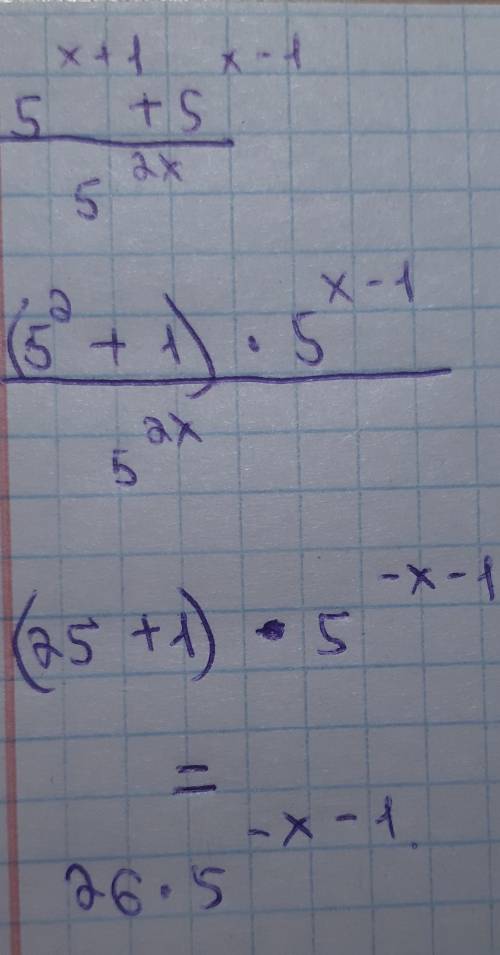 5^{x+1} + 5^{x-1}
5^{2x}
(5^2 + 1) · 5^{x-1}
5^{2x}
(25 + 1) · 5^{-x-1}
=
26 · 5^{-x-1}.